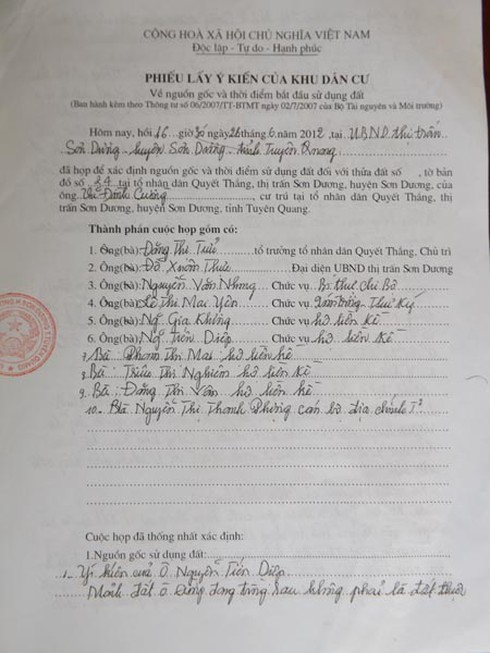 CỘNG HOÀ XÃ HỘI CHỦ NGHĨA VIỆT NAM
Độc lập - Tự do - Hạnh phúc
PHIẾU LẤY Ý KIẾN CỦA KHU DÂN CƯ
Về nguồn gốc và thời điểm bắt đầu sử dụng đất
(Ban hành kèm theo Thông tư số 06/2007/TT-BTMT ngày 02/7/2007 của Bộ Tài nguyên và Môi trường)
Hôm nay, hồi 16 giờ 30 ngày 26 tháng 6 năm 2012, tại UBND thị trấn
Sơn Dương - huyện Sơn Dương - tỉnh Tuyên Quang
đã họp để xác định nguồn gốc và thời điểm sử dụng đất đối với thửa đất số , tờ bản
đồ số 24 tại tổ nhân dân Quyết Thắng, thị trấn Sơn Dương, huyện Sơn Dương, của
ông Vũ Đình Cường cư trú tại tổ nhân dân Quyết Thắng, thị
trấn Sơn Dương, huyện Sơn Dương, tỉnh Tuyên Quang.
Thành phần cuộc họp gồm có:
1. Ông(bà): Đặng Thị tổ trưởng tổ nhân dân Quyết Thắng, Chủ trì
2. Ông(bà): Đỗ Xuân Đại diện UBND thị trấn Sơn Dương
3. Ông(bà): Nguyễn Văn Nhung Chức vụ Bí thư chi Bộ
4. Ông(bà): Lê Thị Mai Yên Chức vụ Thư Ký
5. Ông(bà): Ng Gia Không Chức vụ hộ liền kề
6. Ông(bà): Ng Tiến Diệp Chức vụ hộ liền kề
7. Bà: Phạm Thị Mai hộ liền kề
8. Bà: Triệu Thị Nghiêm hộ liền kề
9. Bà: Đặng Thị Vân hộ liền kề
10. Bà Nguyễn Thị Thanh Phụng cán bộ địa chính
Cuộc họp đã thống nhất xác định:
1.Nguồn gốc sử dụng đất:
1- Ý kiến của Ô. Nguyễn Tiến Diệp
Mảnh đất ô đằng sau không phải là đất thuộc